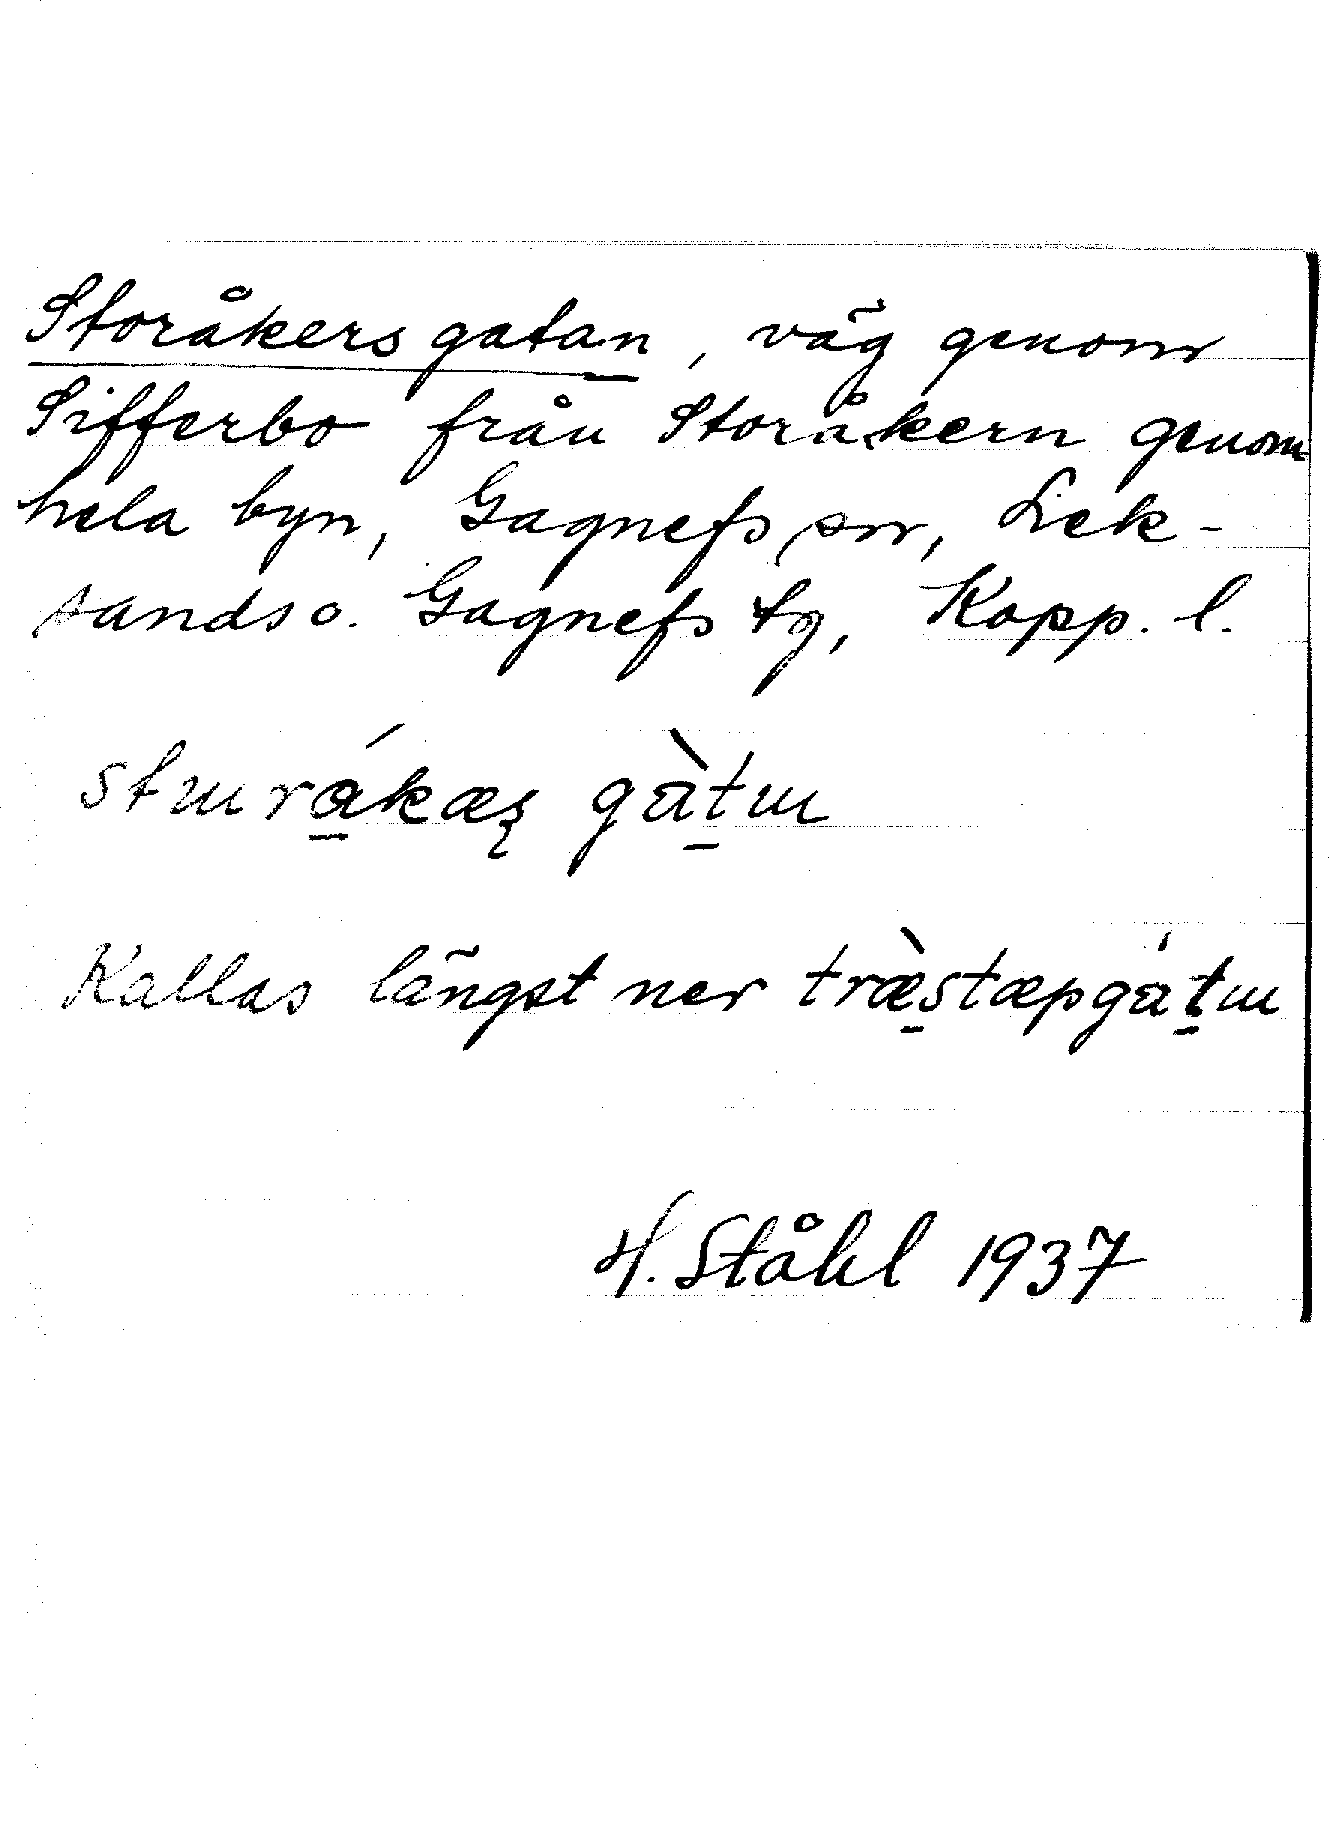 Storåkersgatan, väg genom
Sifferbo från Storåkern genom
hela byn, Gagnefs sn, Lek-
sands o. Gagnefs tg, Kopp. l.
stɯrá̱kæʂ gàṯɯ
Kallas längst ner træ̱̀stæpgáṯɯ
H. Ståhl 1937